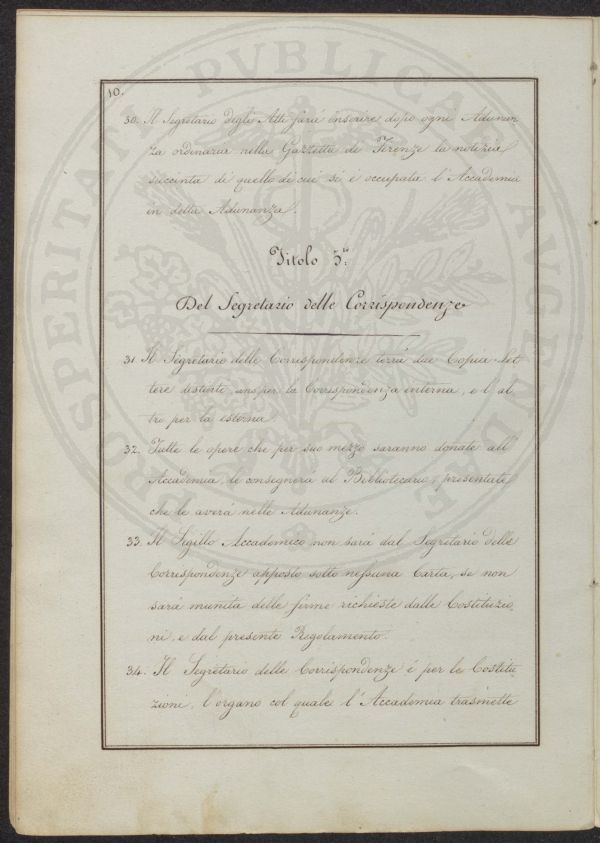 10.
30. Il Segretario degli Atti farà inserire dopo ogni Adunan
za ordinaria nella Gazzetta di Firenze la notizia
succinta di quello di cui si è occupata l'Accademia
in detta Adunanza.
Titolo 5.to
Del Segretario delle Corrispondenze
31. Il Segretario delle Corrispondenze terrà due Copia-Let
tere distinti, uno per la Corrispondenza interna, e l'al
tro per la esterna.
32. Tutte le opere che per suo mezzo saranno donate all'
Accademia, le consegnerà al Bibliotecario, presentate
che le averà nelle Adunanze.
33. Il Sigillo Accademico non sarà dal Segretario delle
Corrispondenze apposto sotto nessuna Carta, se non
sarà munita delle firme richieste dalle Costituzio
ni, e dal presente Regolamento.
34. Il Segretario delle Corrispondenze é per le Costitu
zioni, l'organo col quale l'Accademia trasmette
PROSPERITATI PVBLICAE AVGENDAE